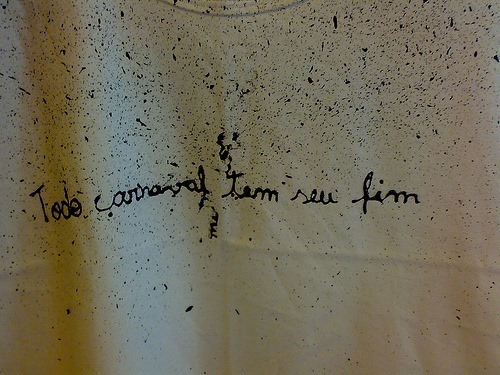 Todo carnaval tem seu fim